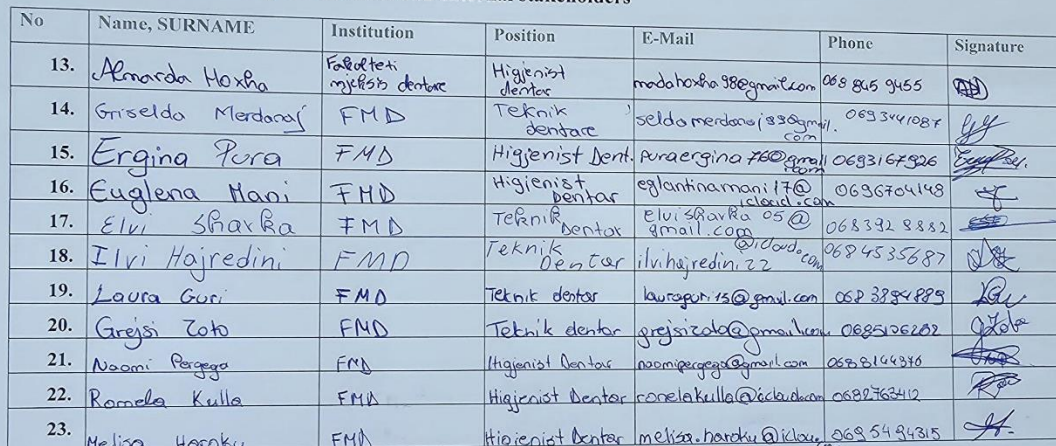 stakeholders
No Name, SURNAME Institution Position E-Mail Phone Signature
13. Almarda Hoxha Fakulteti mjeksis dentare Higjenist dentar madahoxha98@gmail.com 068 845 9455
14. Griselda Merdanaj FMD Teknik dentare seldamerdanaj99@gmail.com 0693441087
15. Ergina Pura FMD Higjenist Dent. puraergina76@gmail.com 0693167926
16. Euglena Mani FMD Higjienist Dentar eglantinamani17@icloud.com 0696704148
17. Elvi Sharka FMD Teknik Dentar Elvisharka05@gmail.com 068392 8882
18. Ilvi Hajredini FMD Teknik Dentar ilvihajredini22@icloud.com 0684535687
19. Laura Guri FMD Teknik dentar lauraguri15@gmail.com 068 3894889
20. Grejsi Zoto FMD Teknik dentar grejsizoto@gmail.com 0685126202
21. Naomi Pergega FMD Higjenist Dentar naomipergega@gmail.com 0688144376
22. Romela Kulla FMD Higjenist Dentar romelakulla@icloud.com 0682763412
23. Melisa Haroku FMD Higjienist Dentar melisa.haroku@iclou 069 54 94315